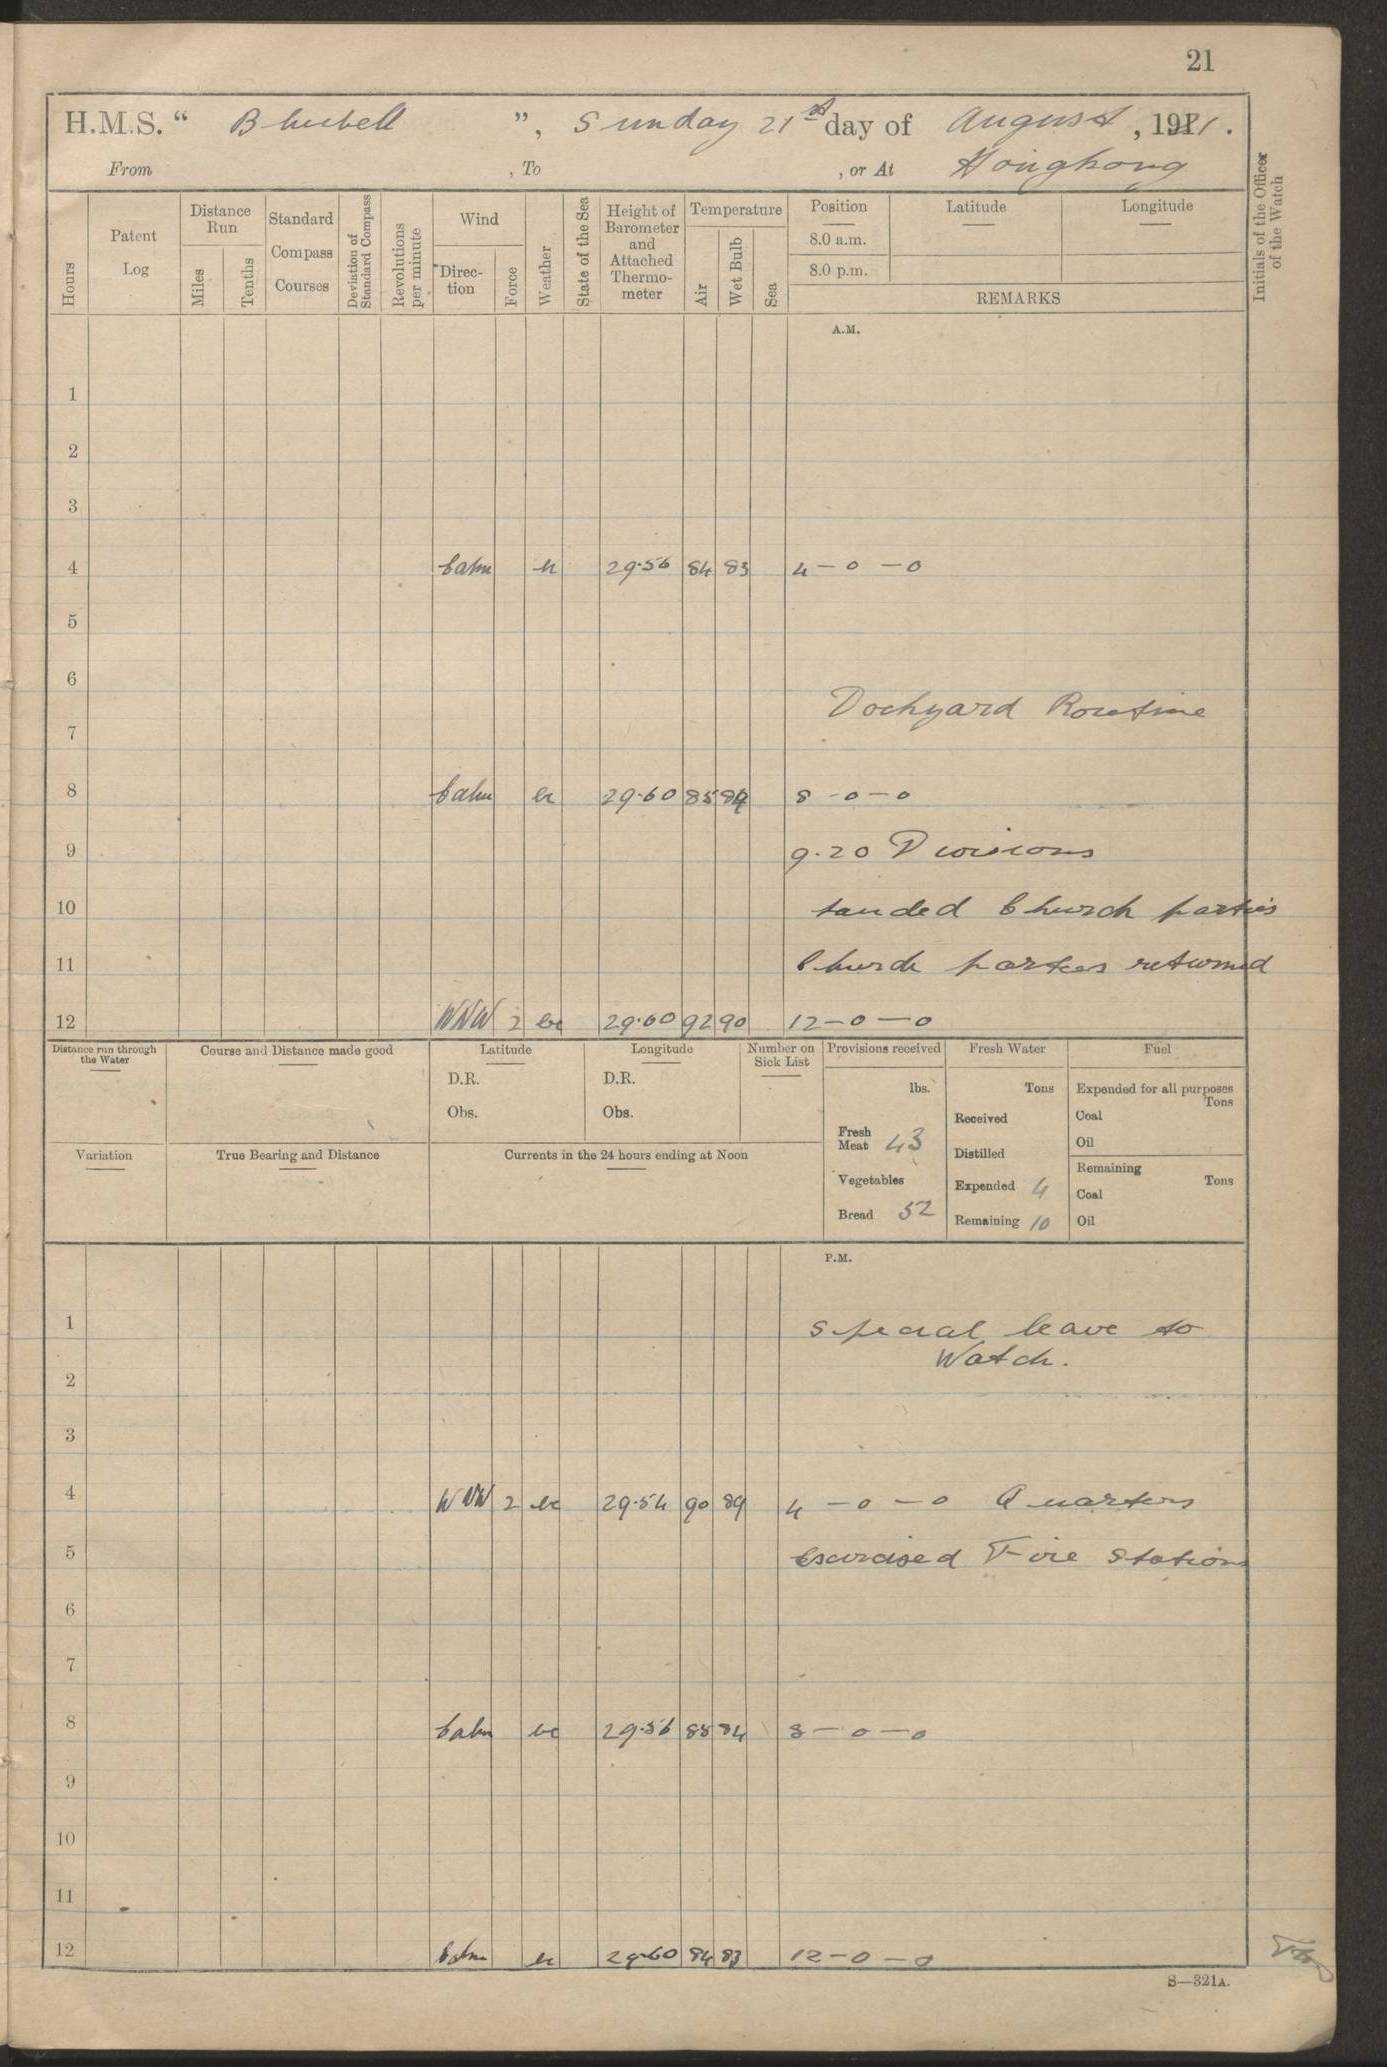 21
H.M.S. “ Bluebell ”, Sunday 21st day of August, 1921.
From , To , or At Hongkong
Initials of the Officer of the Watch
Hours
Patent Log
Distance Run
Miles
Tenths
Standard Compass Courses
Deviation of Standard Compass
Revolutions per minute
Wind
Direc-tion
Force
Weather
State of the Sea
Height of Barometer and Attached Thermo-meter
Temperature
Air
Wet Bulb
Sea
Position Latitude Longitude
8.0 a.m.
8.0 p.m.
REMARKS
A.M.
1
2
3
4 Calm bc 29.56 84 83 4 – 0 – 0
5
6
Dockyard Routine
7
8 Calm bc 29.60 85 84 8 – 0 – 0
9 9.20 Divisions
10 landed Church parties
11 Church parties returned
12 WNW 2 bc 29.60 92 90 12 – 0 – 0
Distance run through the Water
Course and Distance made good
Latitude
D.R.
Obs.
Longitude
D.R.
Obs.
Number on Sick List
Variation
True Bearing and Distance
Currents in the 24 hours ending at Noon
Provisions received
lbs.
Fresh Meat 43
Vegetables
Bread 52
Fresh Water
Tons
Received
Distilled
Expended 4
Remaining 10
Fuel
Expended for all purposes
Tons
Coal
Oil
Remaining
Tons
Coal
Oil
P.M.
1 Special leave to
Watch.
2
3
4 WNW 2 bc 29.54 90 89 4 – 0 – 0 Quarters
5 Exercised Fire Stations
6
7
8 Calm bc 29.56 85 84 8 – 0 – 0
9
10
11
12 Calm bc 29.60 84 83 12 – 0 – 0
S—321A.